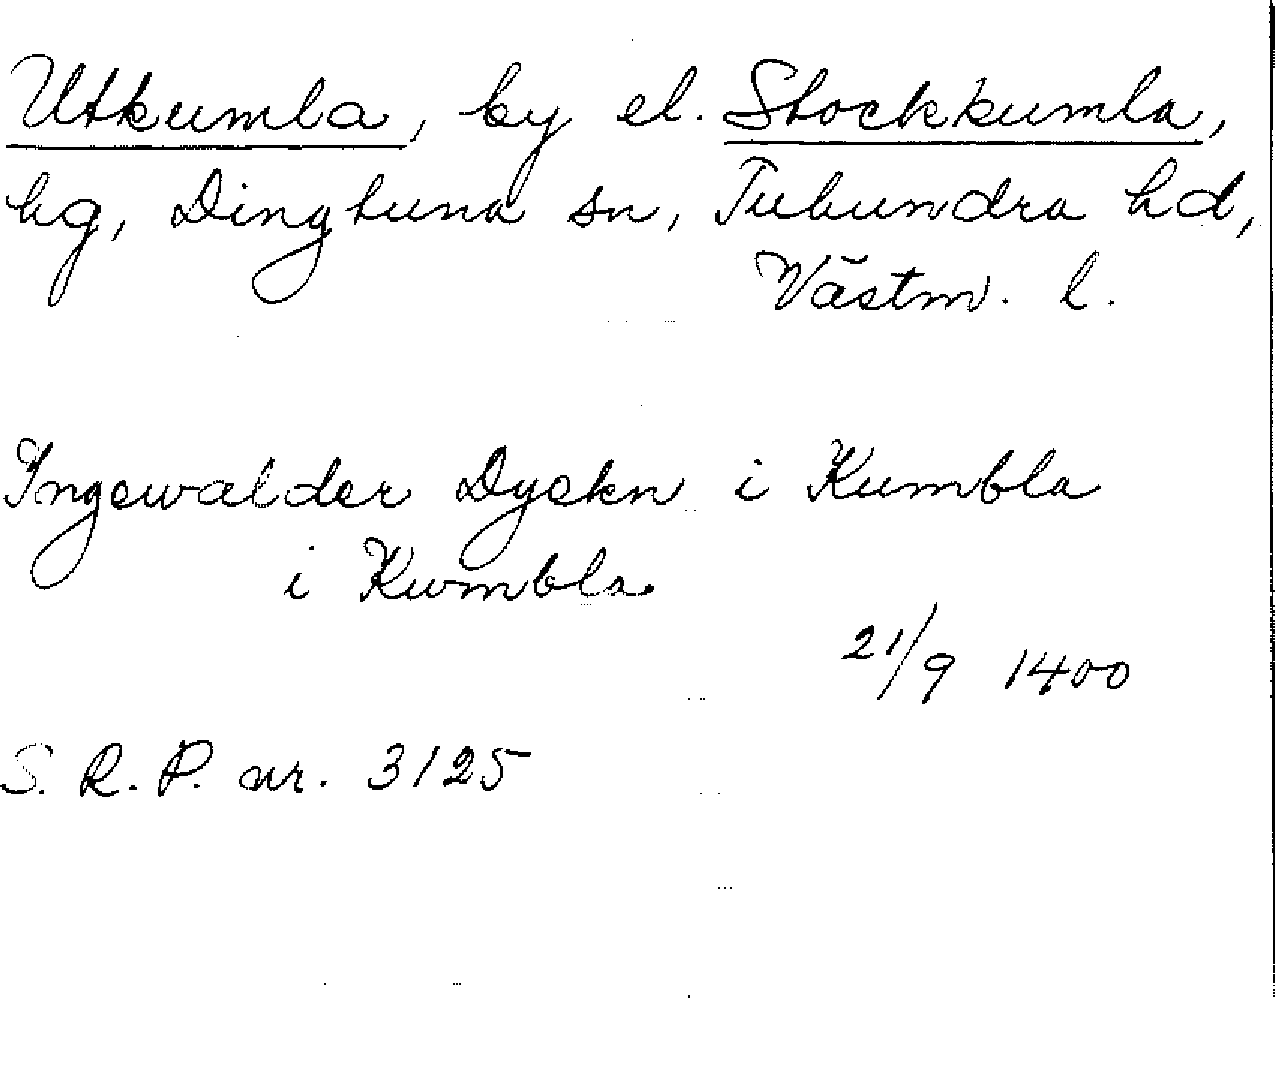 Utkumla, by el. Stockkumla,
hg, Dingtuna sn, Tuhundra hd,
Västm. l.
Ingewalder Dyekn i Kumbla
i Kwmbla.
21/9 1400
S. R. P. nr. 3125